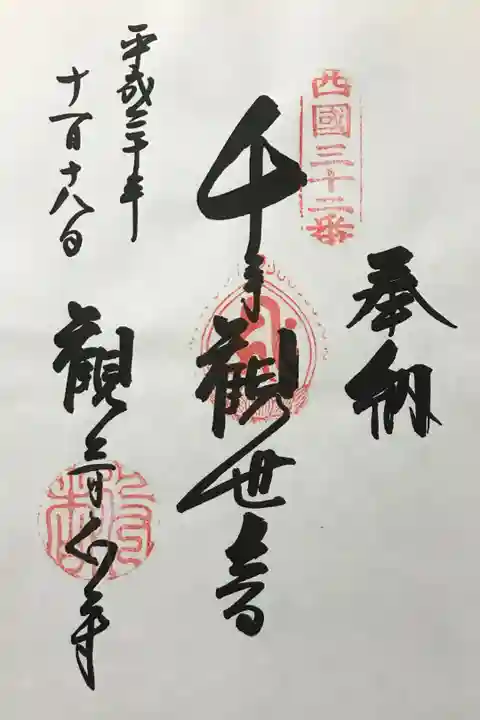 奉納
西國三十二番
千手觀世音
平成二十年
十一月十八日
觀音正寺